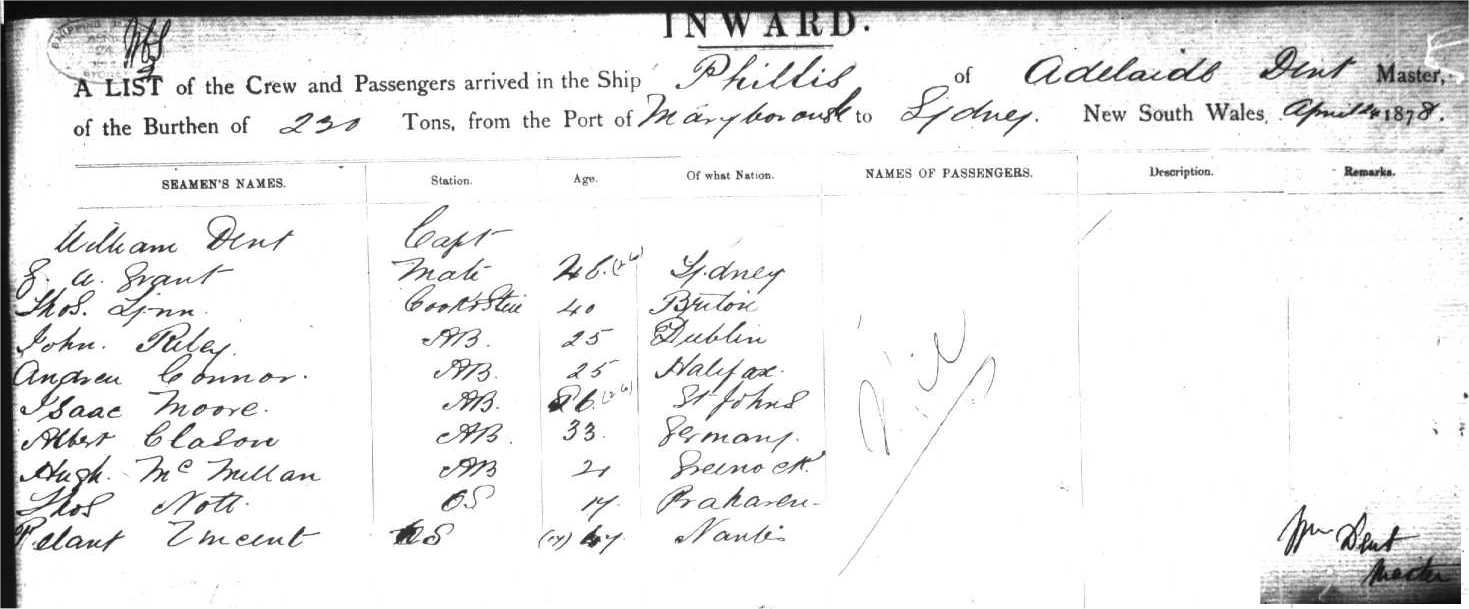 INWARD.
A LIST of the Crew and Passengers arrived in the Ship Phillis of Adelaide Dent Master,
of the Burthen of 230 Tons, from the Port of Maryborough to Sydney. New South Wales, April 24 1878.
SEAMEN'S NAMES. Station. Age. Of what Nation. NAMES OF PASSENGERS. Description. Remarks.
William Dent Capt
E. A. Grant Mate 26 (26) Sydney
Thos. Lynn. 40
John. Riley. AB. 25 Dublin
Andrew Connor. AB. 25 Halifax.
Isaac Moore. AB. 26 (26) St Johns
Albert Clason AB. 33. Germany.
Hugh. Mc Millan AB 21 Greenock.
Thos Nott. OS 17.
Vincent OS (17) Nantes
Nil
Wm Dent
Master